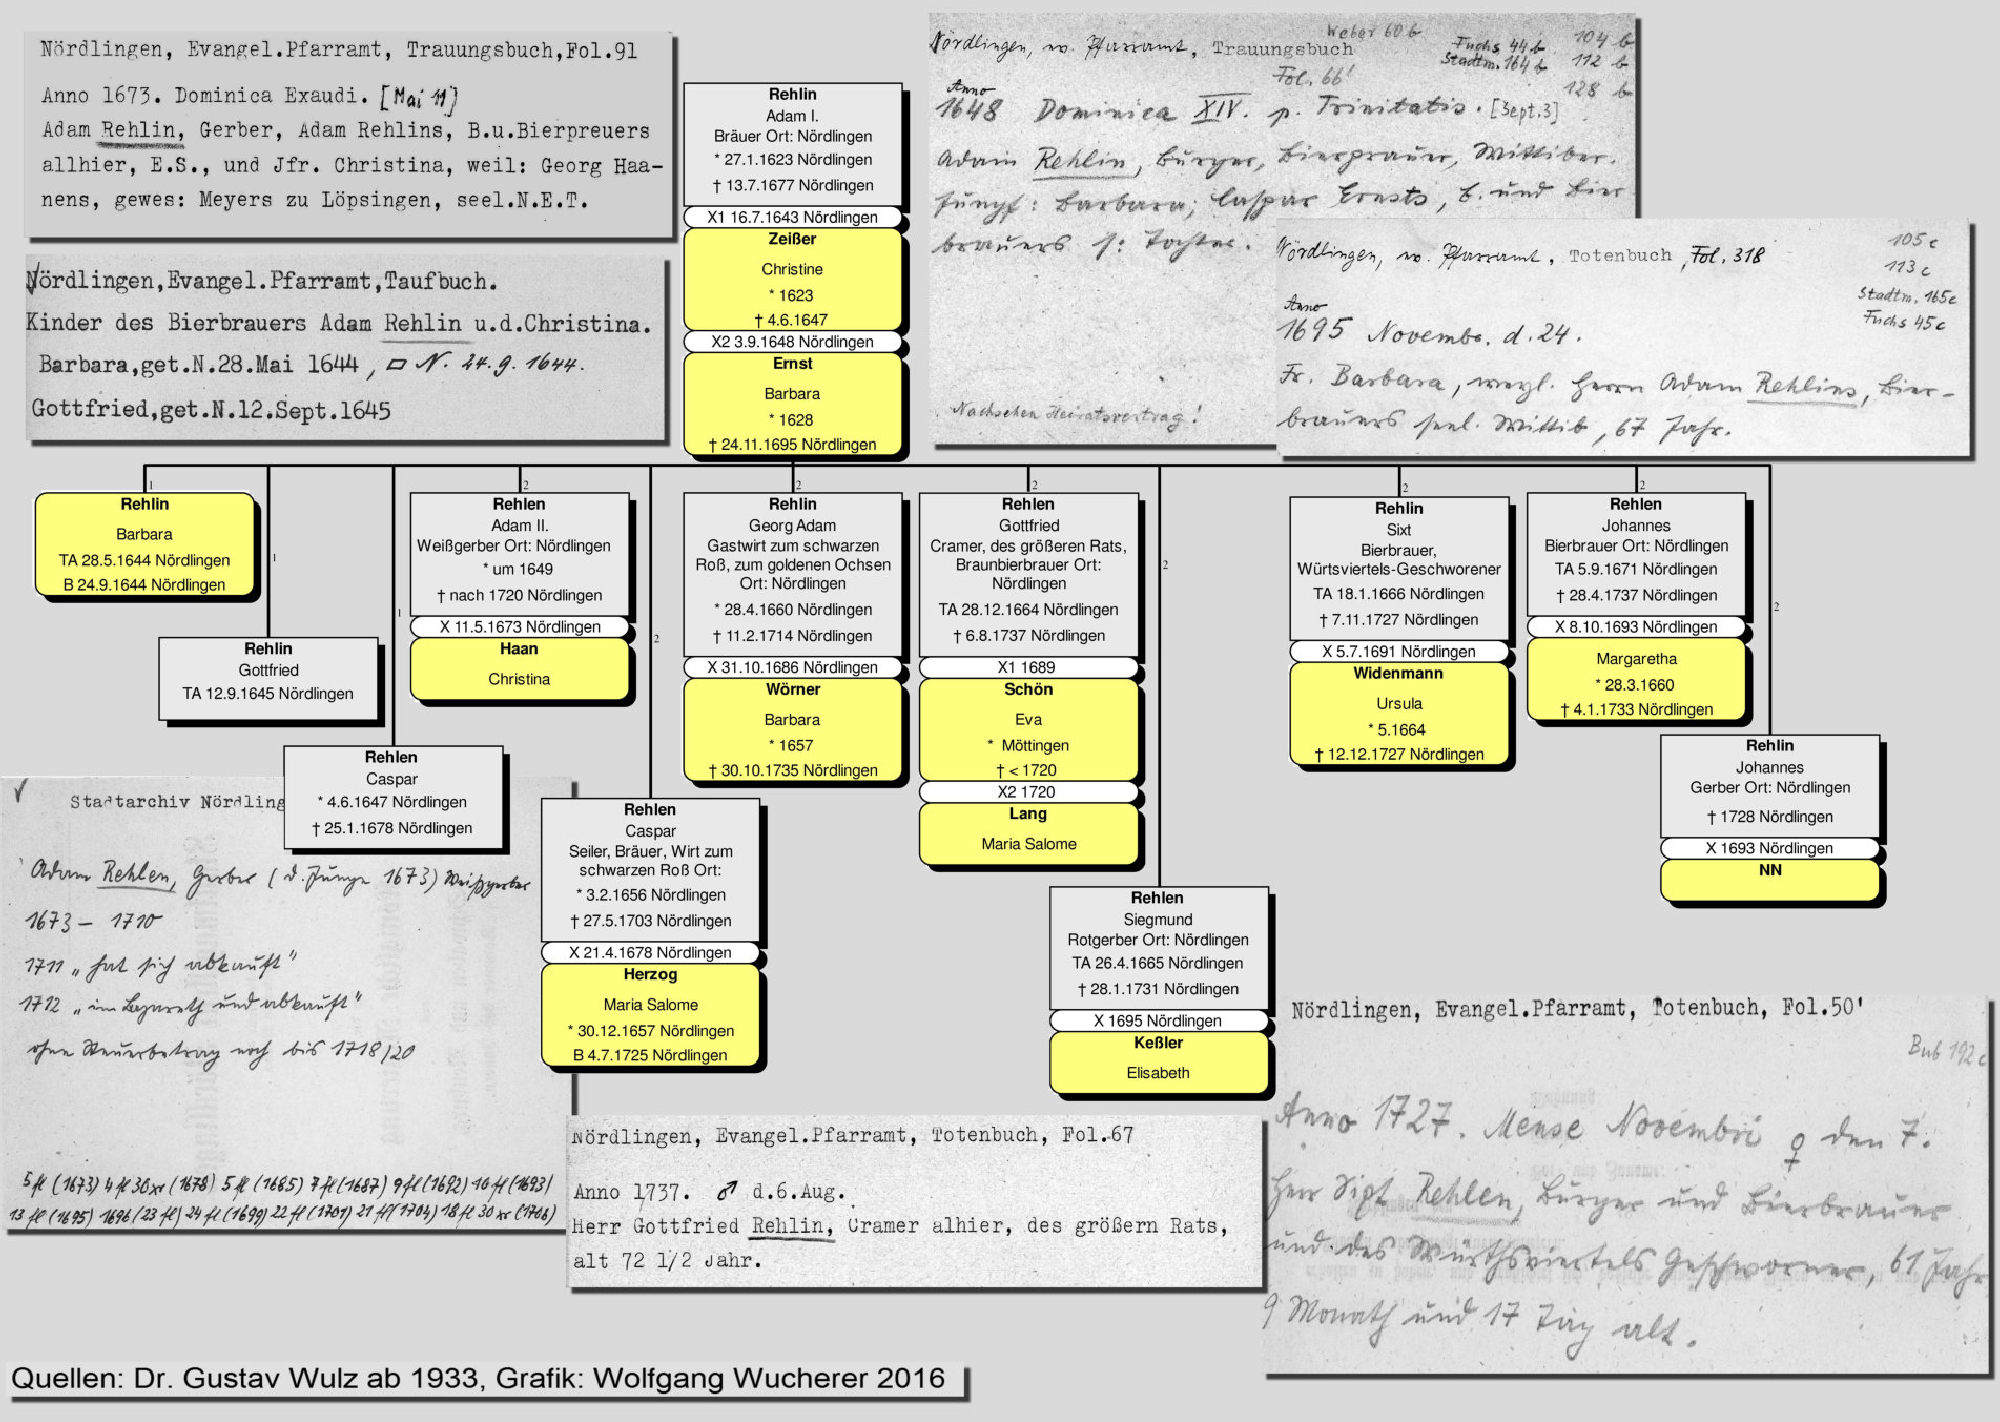 Nördlingen, Evangel.Pfarramt, Trauungsbuch,Fol.91
Anno 1673. Dominica Exaudi. [Mai 11]
Adam Rehlin, Gerber, Adam Rehlins, B.u.Bierpreuers
allhier, E.S., und Jfr. Christina, weil: Georg Haa-
nens, gewes: Meyers zu Löpsingen, seel.N.E.T.
Nördlingen,Evangel.Pfarramt,Taufbuch.
Kinder des Bierbrauers Adam Rehlin u.d.Christina.
Barbara,get.N.28.Mai 1644, N. 24.9.1644.
Gottfried,get.N.12.Sept.1645
Rehlin
Adam I.
Bräuer Ort: Nördlingen
* 27.1.1623 Nördlingen
† 13.7.1677 Nördlingen
X1 16.7.1643 Nördlingen
Zeißer
Christine
* 1623
† 4.6.1647
X2 3.9.1648 Nördlingen
Ernst
Barbara
* 1628
† 24.11.1695 Nördlingen
Weber 60b
Fuchs 44b 104 b
Stadtm. 164 b 112 b
128 b
Nördlingen, ev. Pfarramt, Trauungsbuch
Fol. 66'
Anno
1648 Dominica XIV. p. Trinitatis. [Sept.3]
Adam Rehlin, Burger, Bierprauer, Wittiber.
Jungf: Barbara; Caspar Ernsts, B. und Bier
brauers s: Tochter.
Nachsehen Heiratsvertrag!
Nördlingen, ev. Pfarramt, Totenbuch, Fol. 318
105 c
113 c
Stadtm. 165c
Fuchs 45c
Anno
1695 Novembr. d. 24.
Fr. Barbara, weyl. Herrn Adam Rehlins, Bier-
brauers seel. Wittib, 67 Jahr.
1
Rehlin
Barbara
TA 28.5.1644 Nördlingen
B 24.9.1644 Nördlingen
1
Rehlin
Gottfried
TA 12.9.1645 Nördlingen
1
Rehlen
Caspar
* 4.6.1647 Nördlingen
† 25.1.1678 Nördlingen
2
Rehlen
Adam II.
Weißgerber Ort: Nördlingen
* um 1649
† nach 1720 Nördlingen
X 11.5.1673 Nördlingen
Haan
Christina
2
Rehlen
Caspar
Seiler, Bräuer, Wirt zum
schwarzen Roß Ort:
* 3.2.1656 Nördlingen
† 27.5.1703 Nördlingen
X 21.4.1678 Nördlingen
Herzog
Maria Salome
* 30.12.1657 Nördlingen
B 4.7.1725 Nördlingen
2
Rehlin
Georg Adam
Gastwirt zum schwarzen
Roß, zum goldenen Ochsen
Ort: Nördlingen
* 28.4.1660 Nördlingen
† 11.2.1714 Nördlingen
X 31.10.1686 Nördlingen
Wörner
Barbara
* 1657
† 30.10.1735 Nördlingen
2
Rehlen
Gottfried
Cramer, des größeren Rats,
Braunbierbrauer Ort:
Nördlingen
TA 28.12.1664 Nördlingen
† 6.8.1737 Nördlingen
X1 1689
Schön
Eva
* Möttingen
† < 1720
X2 1720
Lang
Maria Salome
2
Rehlen
Siegmund
Rotgerber Ort: Nördlingen
TA 26.4.1665 Nördlingen
† 28.1.1731 Nördlingen
X 1695 Nördlingen
Keßler
Elisabeth
2
Rehlin
Sixt
Bierbrauer,
Würtsviertels-Geschworener
TA 18.1.1666 Nördlingen
† 7.11.1727 Nördlingen
X 5.7.1691 Nördlingen
Widenmann
Ursula
* 5.1664
† 12.12.1727 Nördlingen
2
Rehlen
Johannes
Bierbrauer Ort: Nördlingen
TA 5.9.1671 Nördlingen
† 28.4.1737 Nördlingen
X 8.10.1693 Nördlingen
Margaretha
* 28.3.1660
† 4.1.1733 Nördlingen
2
Rehlin
Johannes
Gerber Ort: Nördlingen
† 1728 Nördlingen
X 1693 Nördlingen
NN
Stadtarchiv Nördling
Adam Rehlen, Gerber (d. Junge 1673) Weißgerber
1673 – 1710
1711 „hat sich abkauft"
1712 „im Lazareth und abkauft"
ohne Steuerbetrag noch bis 1718/20
5 fl (1673) 4 fl 30 xr (1678) 5 fl (1685) 7 fl (1687) 9 fl (1692) 10 fl (1693)
13 fl (1695) 1696 (23 fl) 24 fl (1699) 22 fl (1701) 21 fl (1704) 18 fl 30 xr (1706)
Nördlingen, Evangel.Pfarramt, Totenbuch, Fol.67
Anno 1737. ♂ d.6.Aug.
Herr Gottfried Rehlin, Cramer alhier, des größern Rats,
alt 72 1/2 Jahr.
Nördlingen, Evangel.Pfarramt, Totenbuch, Fol.50'
Bub 192 c
Anno 1727. Mense Novembri ♀ den 7.
Herr Sixt Rehlen, Burger und Bierbrauer
und des Würthsviertels Geschworner, 61 Jahr
9 Monath und 17 Tag alt.
Quellen: Dr. Gustav Wulz ab 1933, Grafik: Wolfgang Wucherer 2016